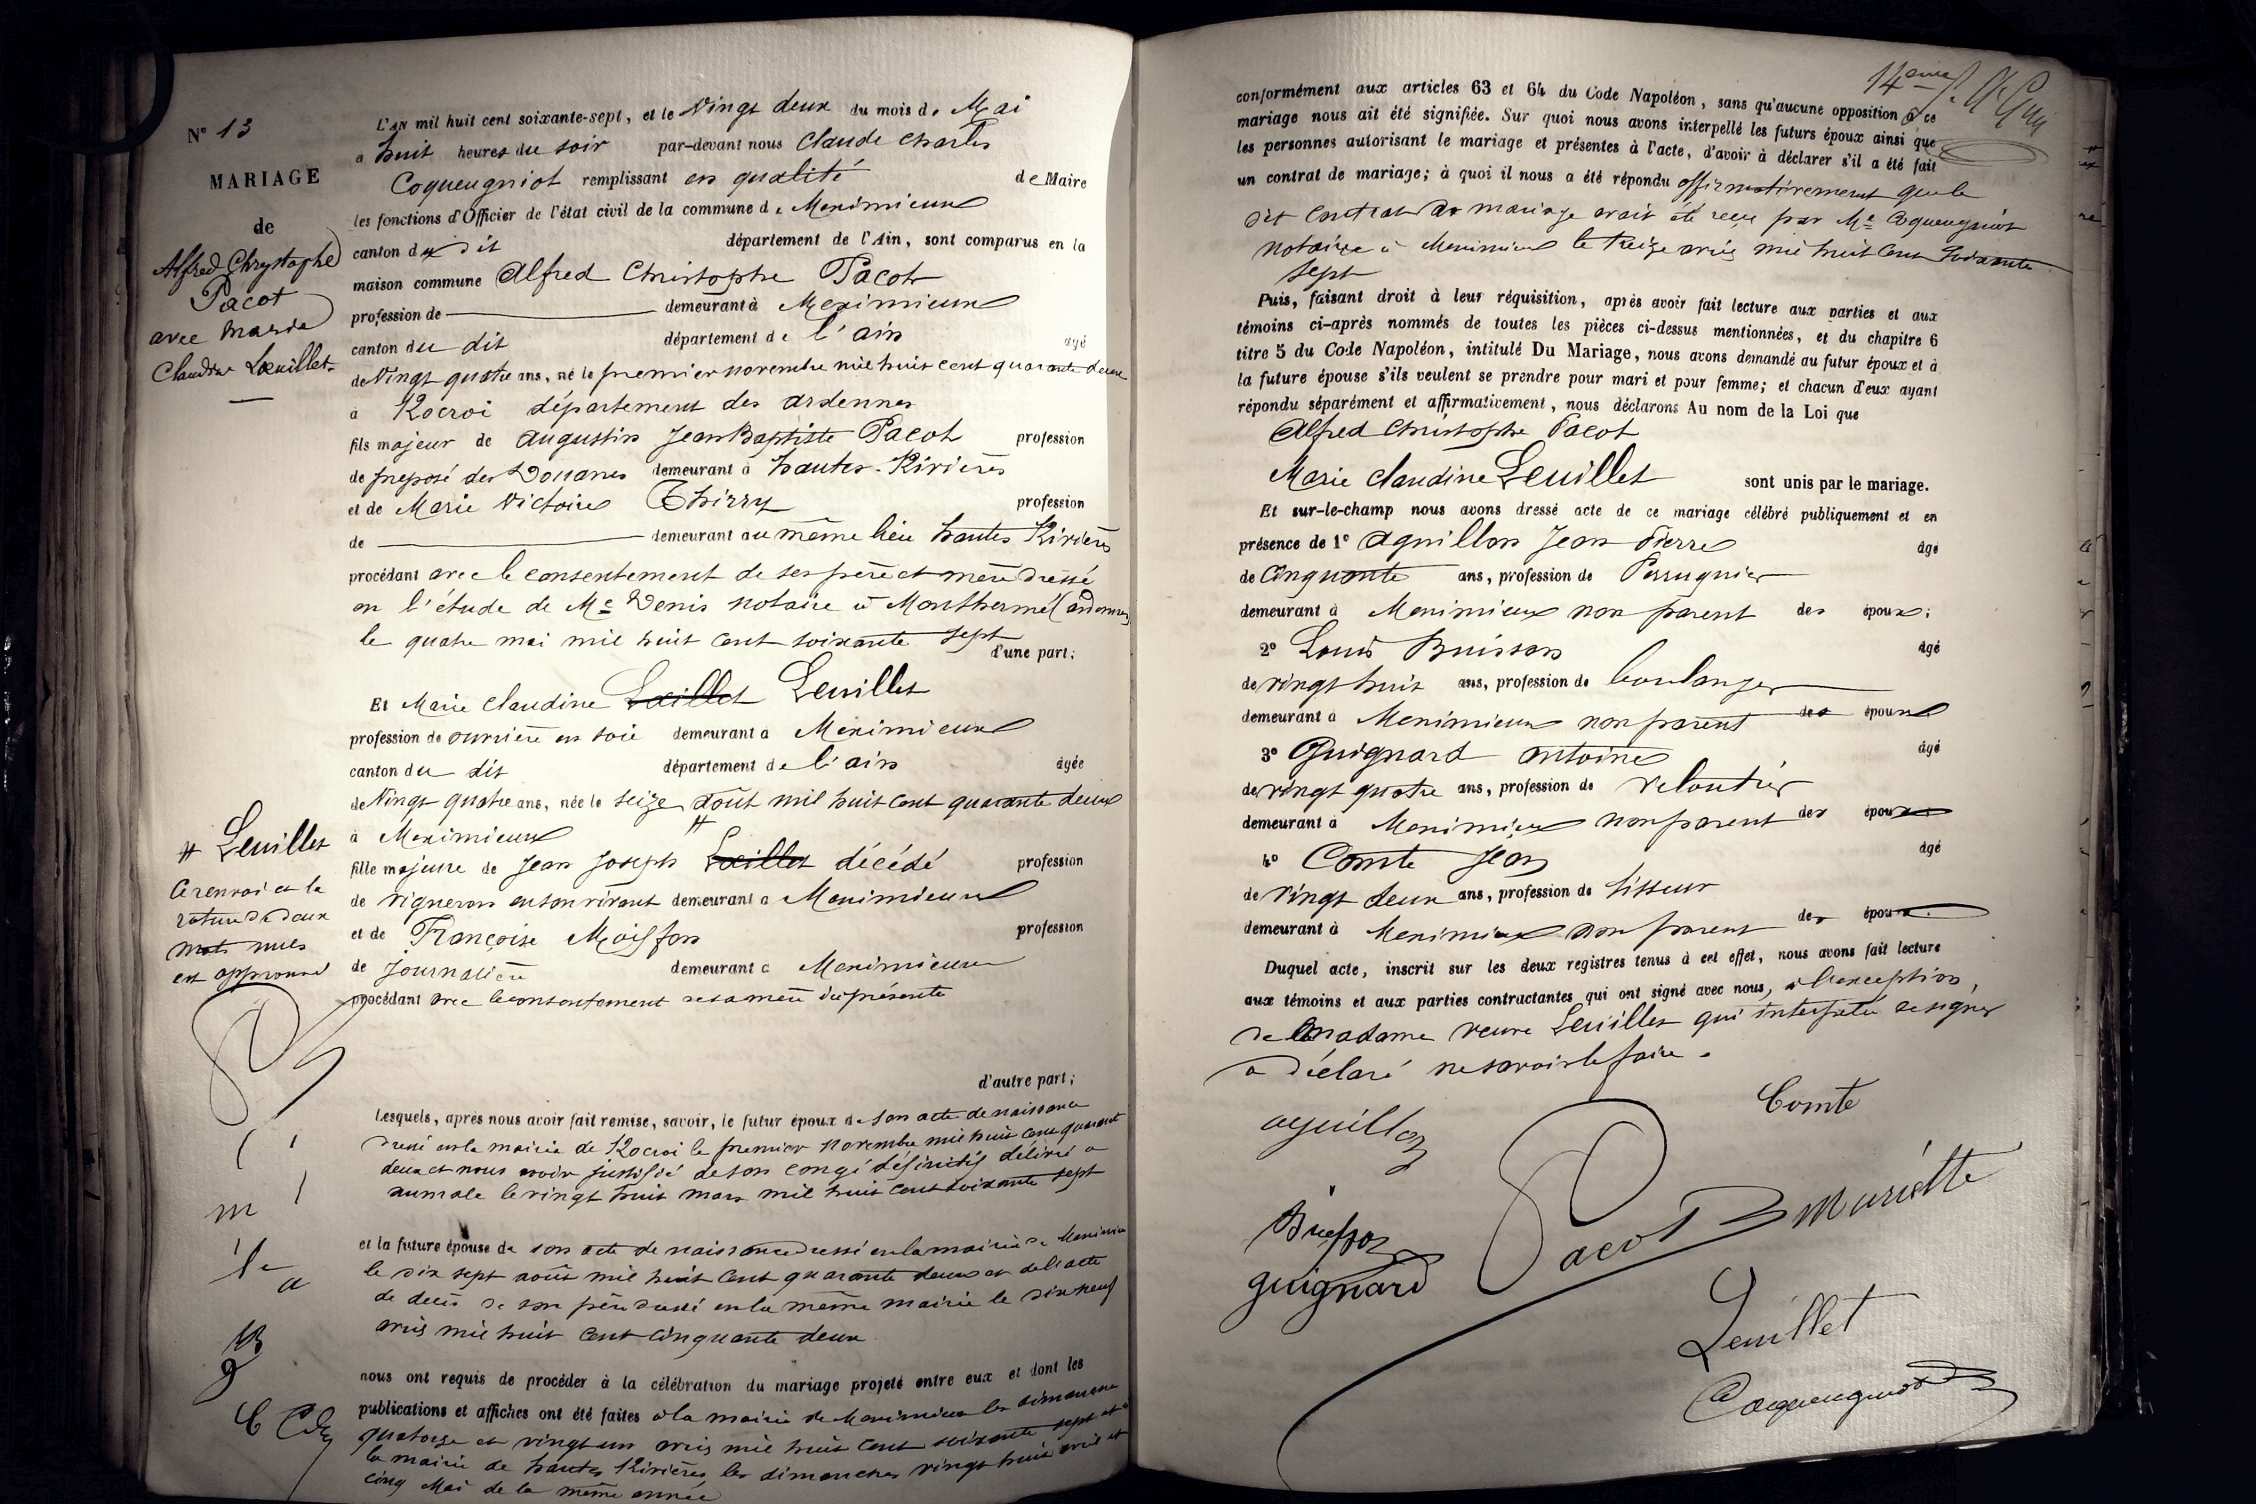 N° 13
MARIAGE
de
Alfred Chrystophe
Pacot
avec Marie
Claudine Leuillet
L'AN mil huit cent soixante-sept, et le Vingt deux du mois de Mai
à huit heures du soir par-devant nous Claude Charles
Coqueugniot remplissant en qualité de Maire
les fonctions d'Officier de l'état civil de la commune de Meximieux
canton du dit département de l'Ain, sont comparus en la
maison commune Alfred Christophe Pacot
profession de demeurant à Meximieux
canton du dit département de l'ain âgé
de Vingt quatre ans, né le premier novembre mil huit cent quarante deux
à Rocroi département des ardennes
fils majeur de Augustin Jean Baptiste Pacot profession
de preposé des Douanes demeurant à hautes-Rivières
et de Marie Victoire Thirry profession
de demeurant au même lieu hautes Rivières
procédant avec le consentement de ses père et mère dressé
en l'étude de Me Denis notaire à Monthermé (ardennes)
le quatre mai mil huit cent soixante sept
d'une part;
Et Marie Claudine Leuillet
profession de ouvrière en soie demeurant à Meximieux
canton du dit département de l'ain âgée
de Vingt quatre ans, née le seize août mil huit cent quarante deux
à Meximieux
fille majeure de Jean Joseph décédé profession
de vigneron en son vivant demeurant à Meximieux
et de Françoise profession
de journalière demeurant à Meximieux
procédant avec le consentement de sa mère ici présente
# Leuillet
Ce renvoi et la
rature de deux
mots nuls
est approuvé
d'autre part;
Lesquels, après nous avoir fait remise, savoir, le futur époux de son acte de naissance
dressé en la mairie de Rocroi le premier novembre mil huit cent quarante
deux et nous avoir justifié de son congé définitif délivré a
aumale le vingt huit mars mil huit cent soixante sept
et la future épouse de son acte de naissance dressé en la mairie de Meximieux
le dix sept août mil huit cent quarante deux et de l'acte
de décès de son père dressé en la même mairie le dix neuf
avril mil huit cent cinquante deux
nous ont requis de procéder à la célébration du mariage projeté entre eux et dont les
publications et affiches ont été faites à la mairie de Meximieux les dimanches
quatorze et vingt un avril mil huit cent soixante sept et à
la mairie de hautes Rivières les dimanches vingt huit avril et
cinq Mai de la même année
14eme
conformément aux articles 63 et 64 du Code Napoléon, sans qu'aucune opposition à ce
mariage nous ait été signifiée. Sur quoi nous avons interpellé les futurs époux ainsi que
les personnes autorisant le mariage et présentes à l'acte, d'avoir à déclarer s'il a été fait
un contrat de mariage; à quoi il nous a été répondu affirmativement que le
dit contrat de mariage avait été reçu par Me Coqueugniot
notaire à Meximieux le treize avril mil huit cent soixante
sept
Puis, faisant droit à leur réquisition, après avoir fait lecture aux parties et aux
témoins ci-après nommés de toutes les pièces ci-dessus mentionnées, et du chapitre 6
titre 5 du Code Napoléon, intitulé Du Mariage, nous avons demandé au futur époux et à
la future épouse s'ils veulent se prendre pour mari et pour femme; et chacun d'eux ayant
répondu séparément et affirmativement, nous déclarons Au nom de la Loi que
Alfred Christophe Pacot
Marie Claudine Leuillet sont unis par le mariage.
Et sur-le-champ nous avons dressé acte de ce mariage célébré publiquement et en
présence de 1° Aguillon Jean Pierre âgé
de Cinquante ans, profession de Perruquier
demeurant à Meximieux non parent des époux;
2° Louis Buisson âgé
de vingt huit ans, profession de boulanger
demeurant à Meximieux non parent des époux
3° Guignard Antoine âgé
de vingt quatre ans, profession de veloutier
demeurant à Meximieux non parent des époux
4° Comte Jean âgé
de vingt deux ans, profession de tisseur
demeurant à Meximieux non parent des époux.
Duquel acte, inscrit sur les deux registres tenus à cet effet, nous avons fait lecture
aux témoins et aux parties contractantes qui ont signé avec nous, à l'exception
de Madame veuve Leuillet qui interpelée de signer
a déclaré ne savoir le faire.
aguillon
Comte
Buisson
Pacot
Mariette
guignard
Leuillet
Coqueugniot